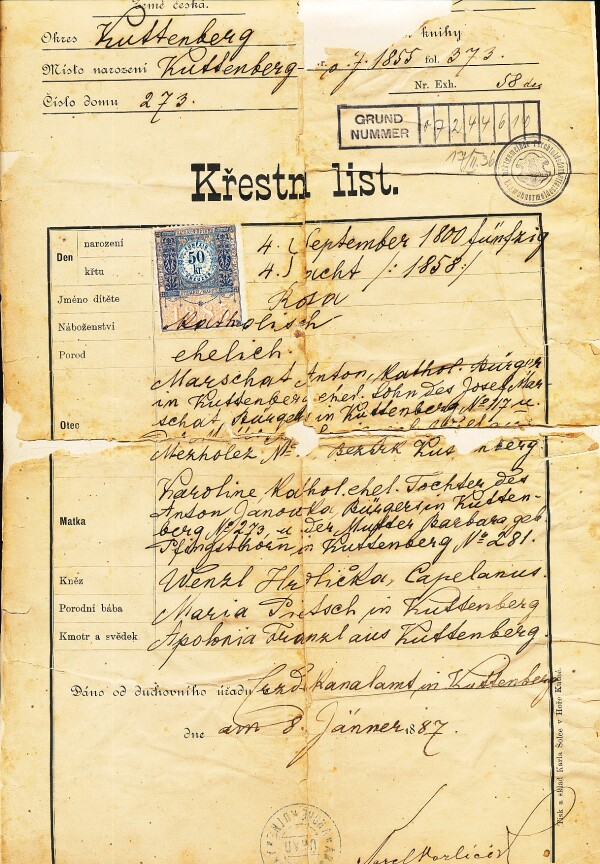 Země česká.
Okres Kuttenberg
Místo narození Kuttenberg
Číslo domu 273.
knihy
1855 fol. 373.
Nr. Exh. 58
GRUND
NUMMER 7 2 4 4 6 1
Křestn list.
Den narození 4. September 1800 fünfzig
křtu 4. Nacht /: 1858 :/
50
kr
Jméno dítěte Rosa
Náboženství Katholisch
Porod ehelich.
Marschat Anton, Kathol. Bürger
in Kuttenberg ehel. Sohn des Josef Mar-
schat, Bürger in Kuttenberg No 117 u.
Otec
Bezirk Kut nberg.
Karoline, Kathol. ehel. Tochter des
Anton Janowka, Bürgers in Kutten-
Matka berg No 273, u. der Mutter Barbara geb.
Pfingsthorn in Kuttenberg No 281.
Kněz Wenzl Hrdlička, Capelanus.
Porodní bába Maria in Kuttenberg
Kmotr a svědek Apolonia Franzl aus Kuttenberg.
Dáno od duchovního úřadu in Kuttenberg
dne am 8. Jänner 1887.
Tisk a sklad Karla Šolce v Hoře Kutné.